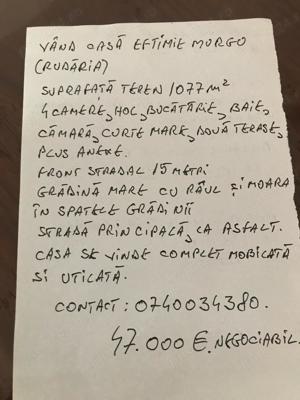 VÂND CASĂ EFTIMIE MURGO
(RUDĂRIA)
SUPRAFAȚĂ TEREN 1077 m²
4 CAMERE, HOL, BUCĂTĂRIE, BAIE,
CĂMARĂ, CURTE MARE, DOUĂ TERASE,
PLUS ANEXE.
FRONT STRADAL 15 METRI
GRĂDINĂ MARE CU RÂUL ȘI MOARA
ÎN SPATELE GRĂDINII
STRADĂ PRINCIPALĂ, LA ASFALT.
CASA SE VINDE COMPLET MOBILATĂ
SI UTILATĂ.
CONTACT: 0740034380.
47.000 €. NEGOCIABIL.